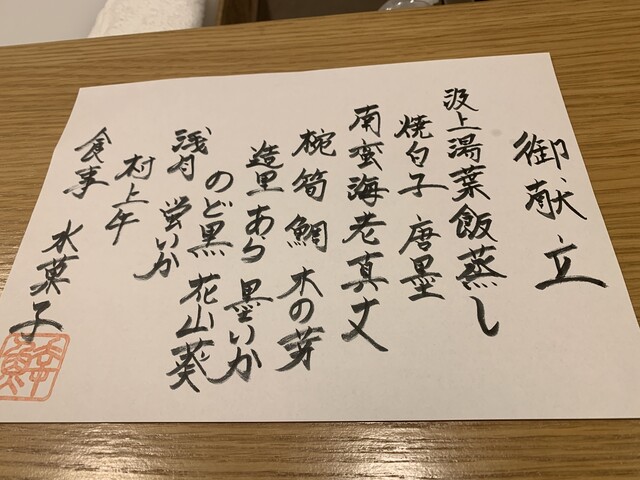 御献立
汲上湯葉飯蒸し
焼白子 唐墨
南蛮海老真丈
椀 筍 鯛 木の芽
造里 あら 墨いか
のど黒 花山葵
浅月 蛍いか
村上牛
食事 水菓子